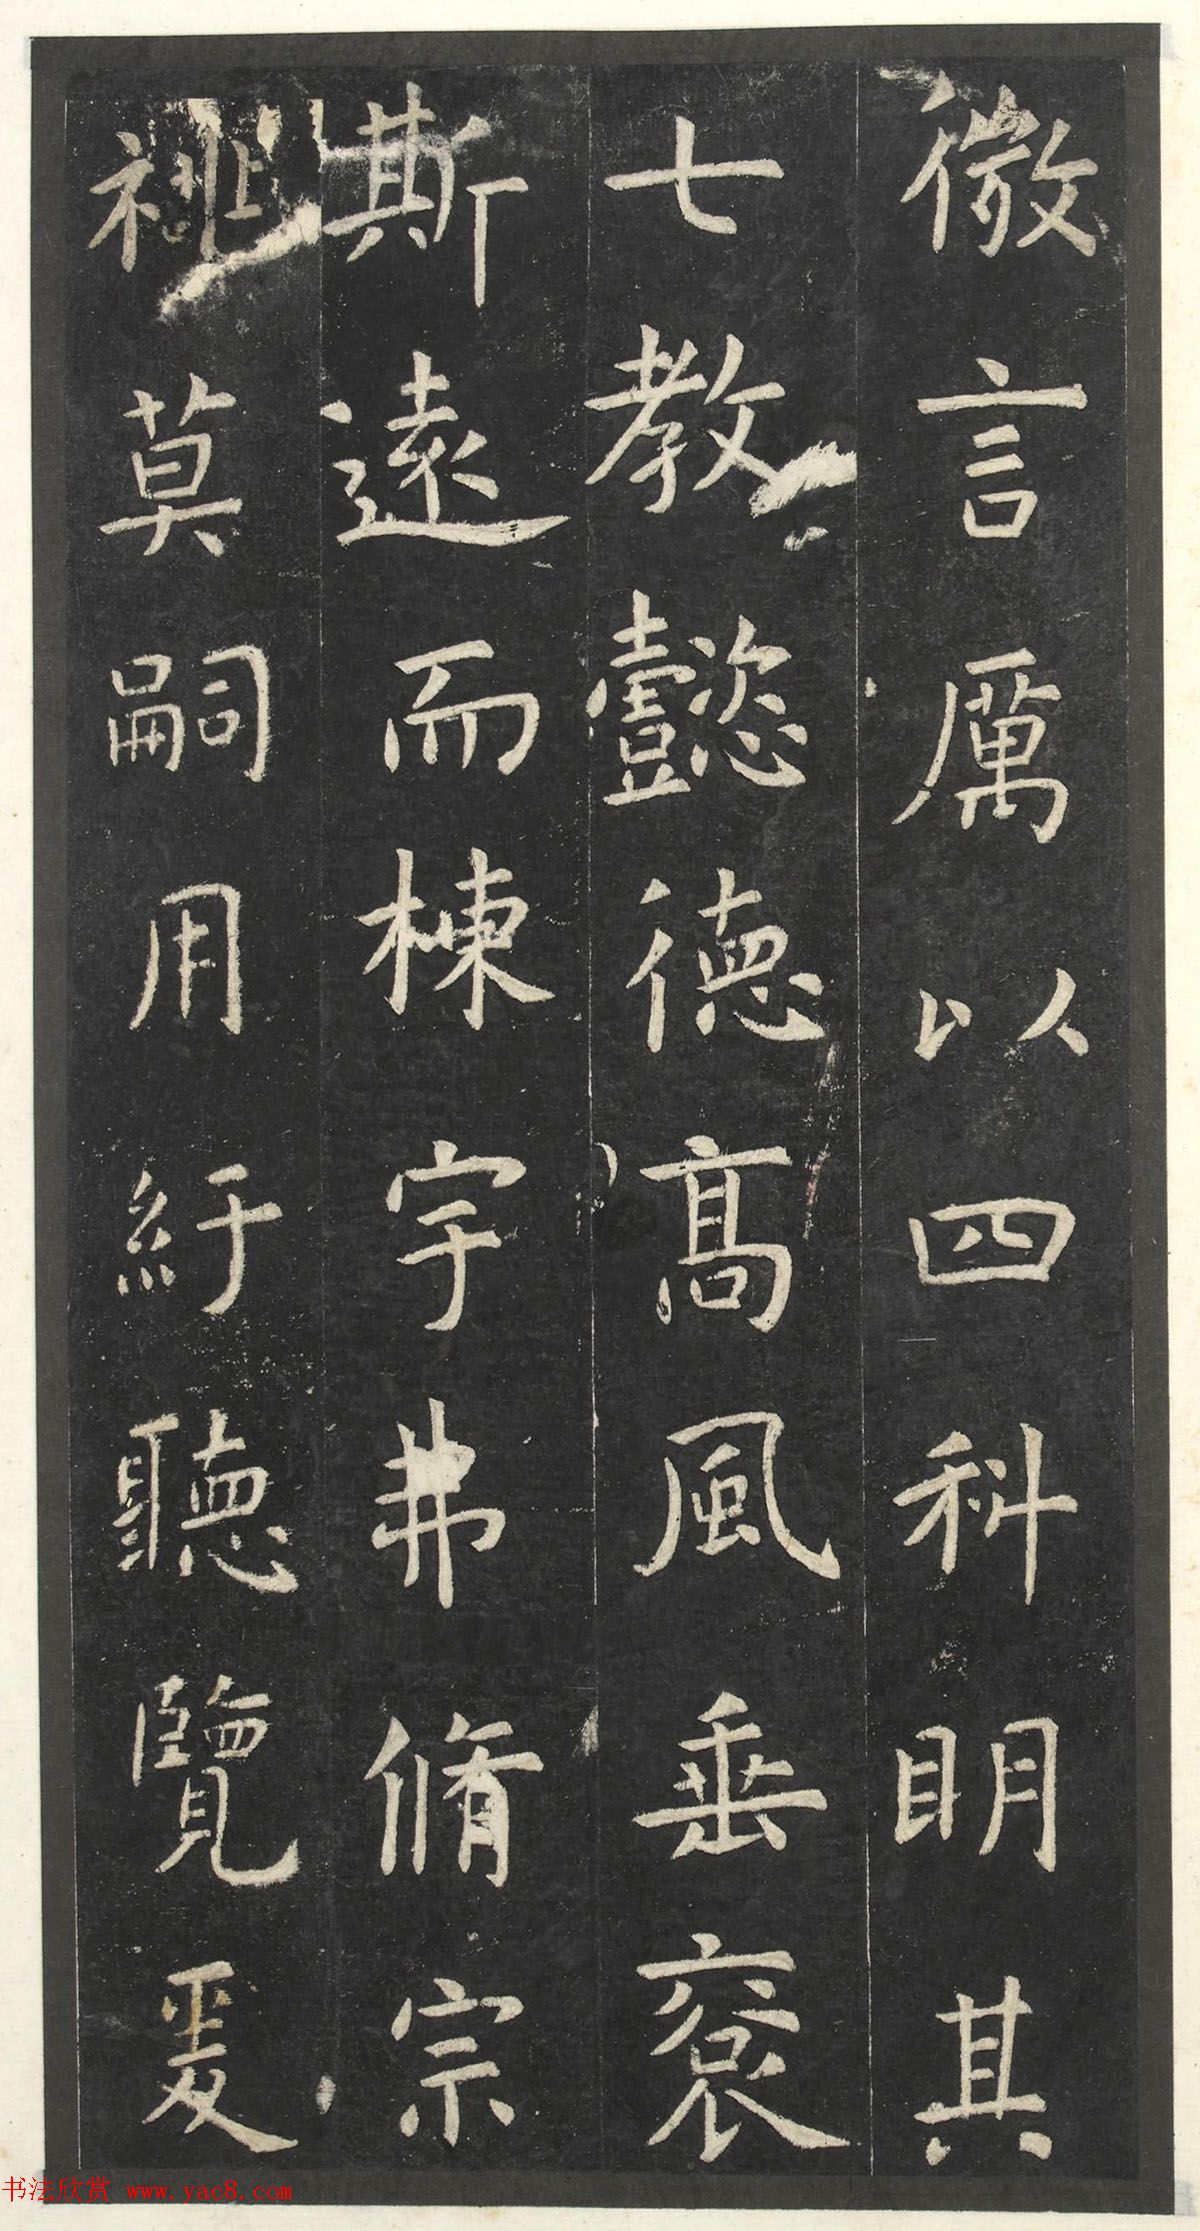 微言厲以四科明其
七教懿德高風垂裒
斯遠而棟宇弗脩宗
祧莫嗣用紆聽覽爰
书法欣赏 www.yac8.com